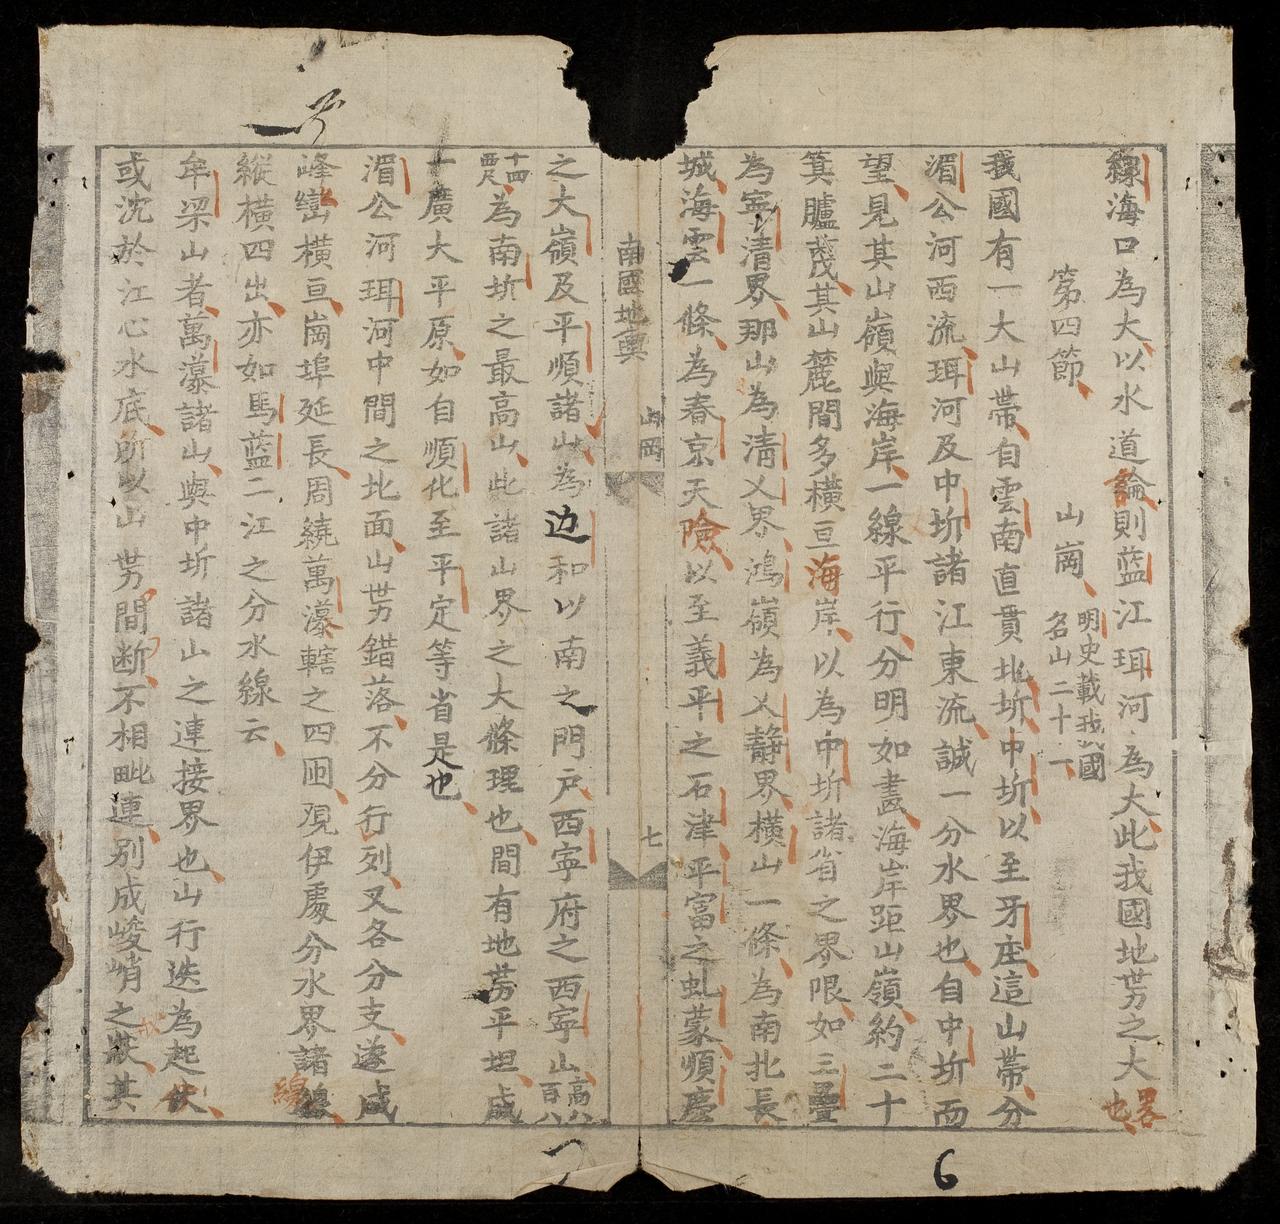 線海口為大以水道論則藍江珥河為大此我國地势之大畧也
第四節 山崗 明史載我國名山二十一
我國有一大山帶自雲南直貫北圻中圻以至牙庄這山帶分
湄公河西流珥河及中圻諸江東流誠一分水界也自中圻而
望見其山嶺與海岸一線平行分明如畫海岸距山嶺約二十
箕臚茂其山麓間多橫亘海岸以為中圻諸省之界限如三疊
為寕清界那山為清乂界鴻嶺為乂靜界橫山一條為南北長
城海雲一條為春京天險以至義平之石津平富之虬蒙順慶
南國地輿 山岡 七
之大嶺及平順諸山為边和以南之門戸西寕府之西寕山高八百八
十四西尺為南圻之最高山此諸山界之大條理也間有地势平坦成
一廣大平原如自順化至平定等省是也
湄公河珥河中間之北面山势錯落不分行列又各分支遂成
峰巒橫亘崗埠延長周繞萬瀑轄之四囬覌伊處分水界諸線
縱橫四出亦如馬藍二江之分水線云
牟梁山者萬瀑諸山與中圻諸山之連接界也山行迭為起伏
或沈於江心水底所以山势間断不相毗連别成峻峭之狀其
6
7